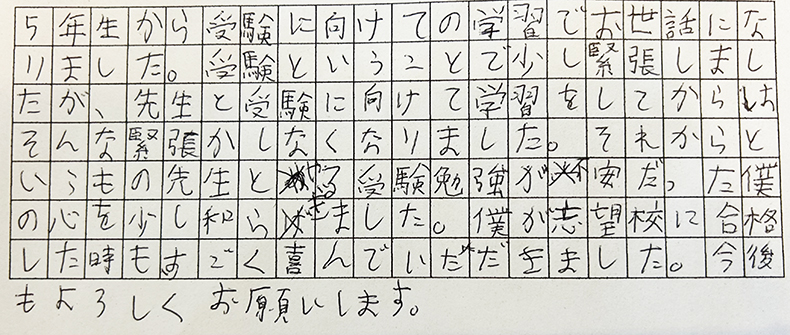 5年生から受験に向けての学習でお世話にな
りました。受験ということで少し緊張しまし
たが、先生と受験に向けて学習をしてからは
そんな緊張かしなくなりました。それからと
いうもの先生とやる受験勉強が不安だった僕
の心を少し和らげました。僕が志望校に合格
した時もすごく喜んでいただきました。今後
もよろしくお願いします。